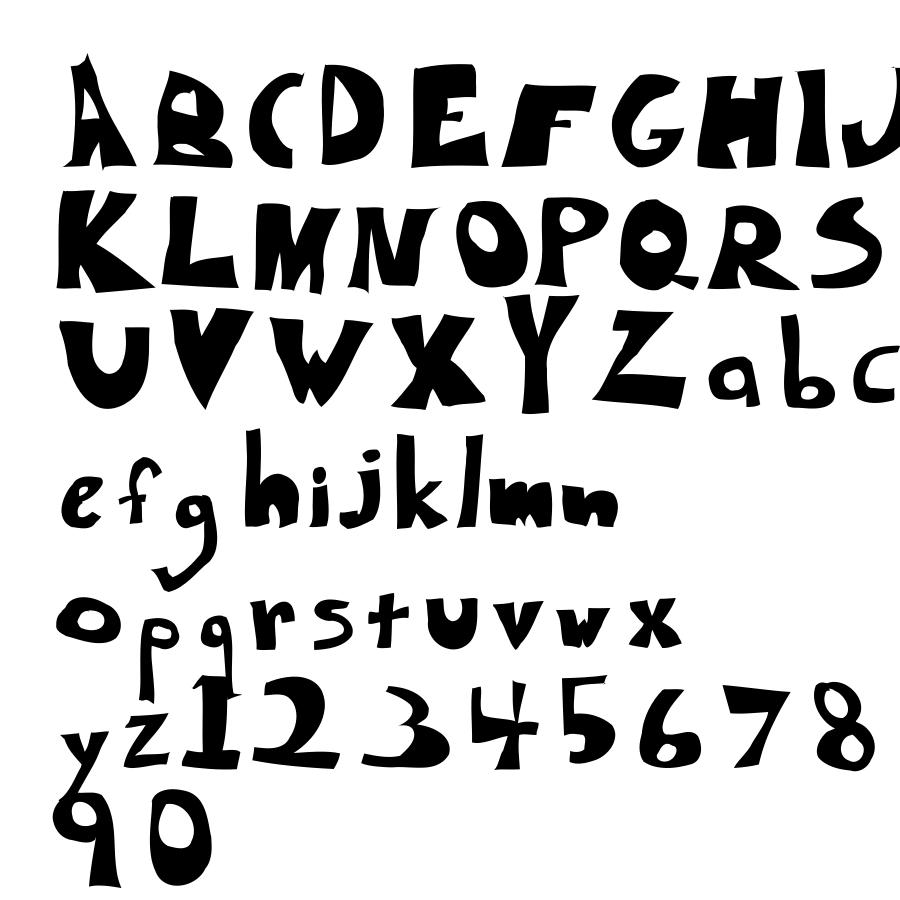 ABCDEFGHIJ
KLMNOPQRS
UVWXYZabc
efghijklmn
opqrstuvwx
yz12345678
90